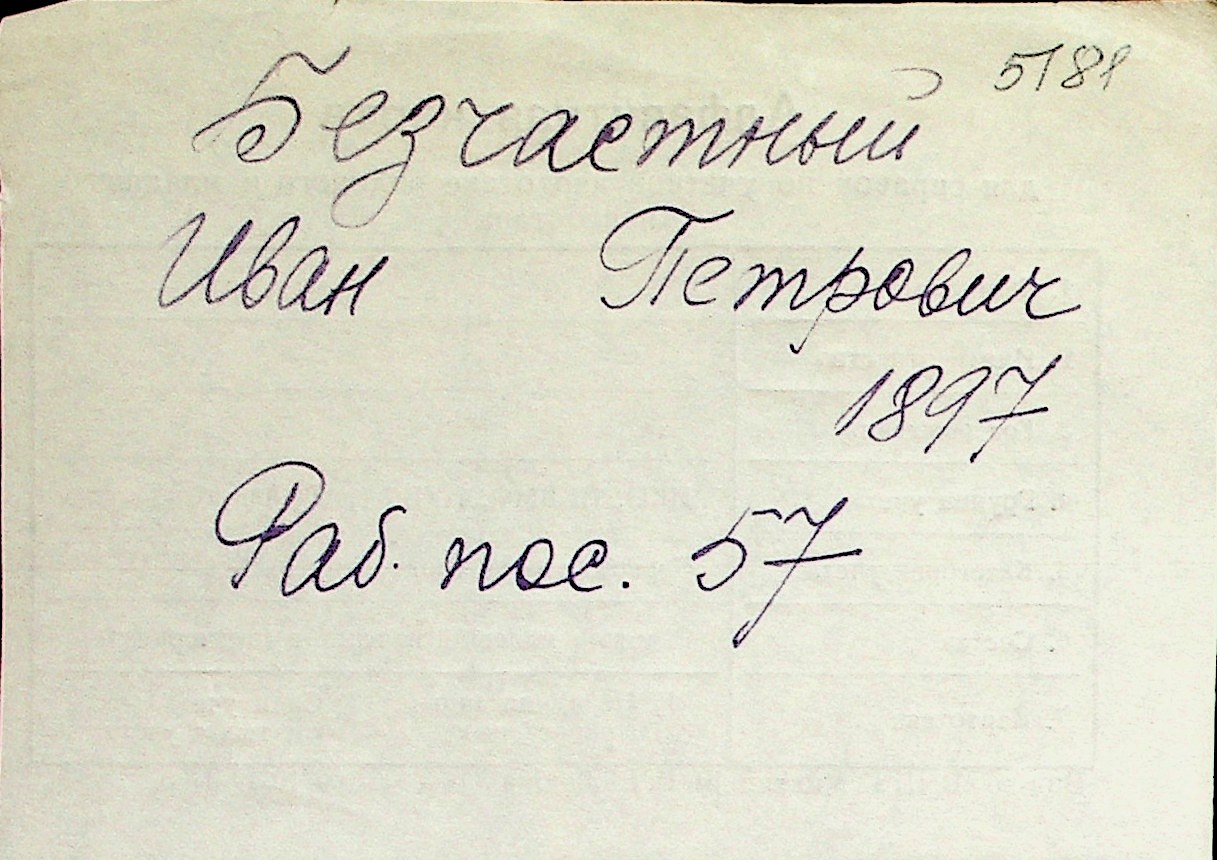 5181
Безчастный
Иван Петрович
1897
Раб. пос. 57